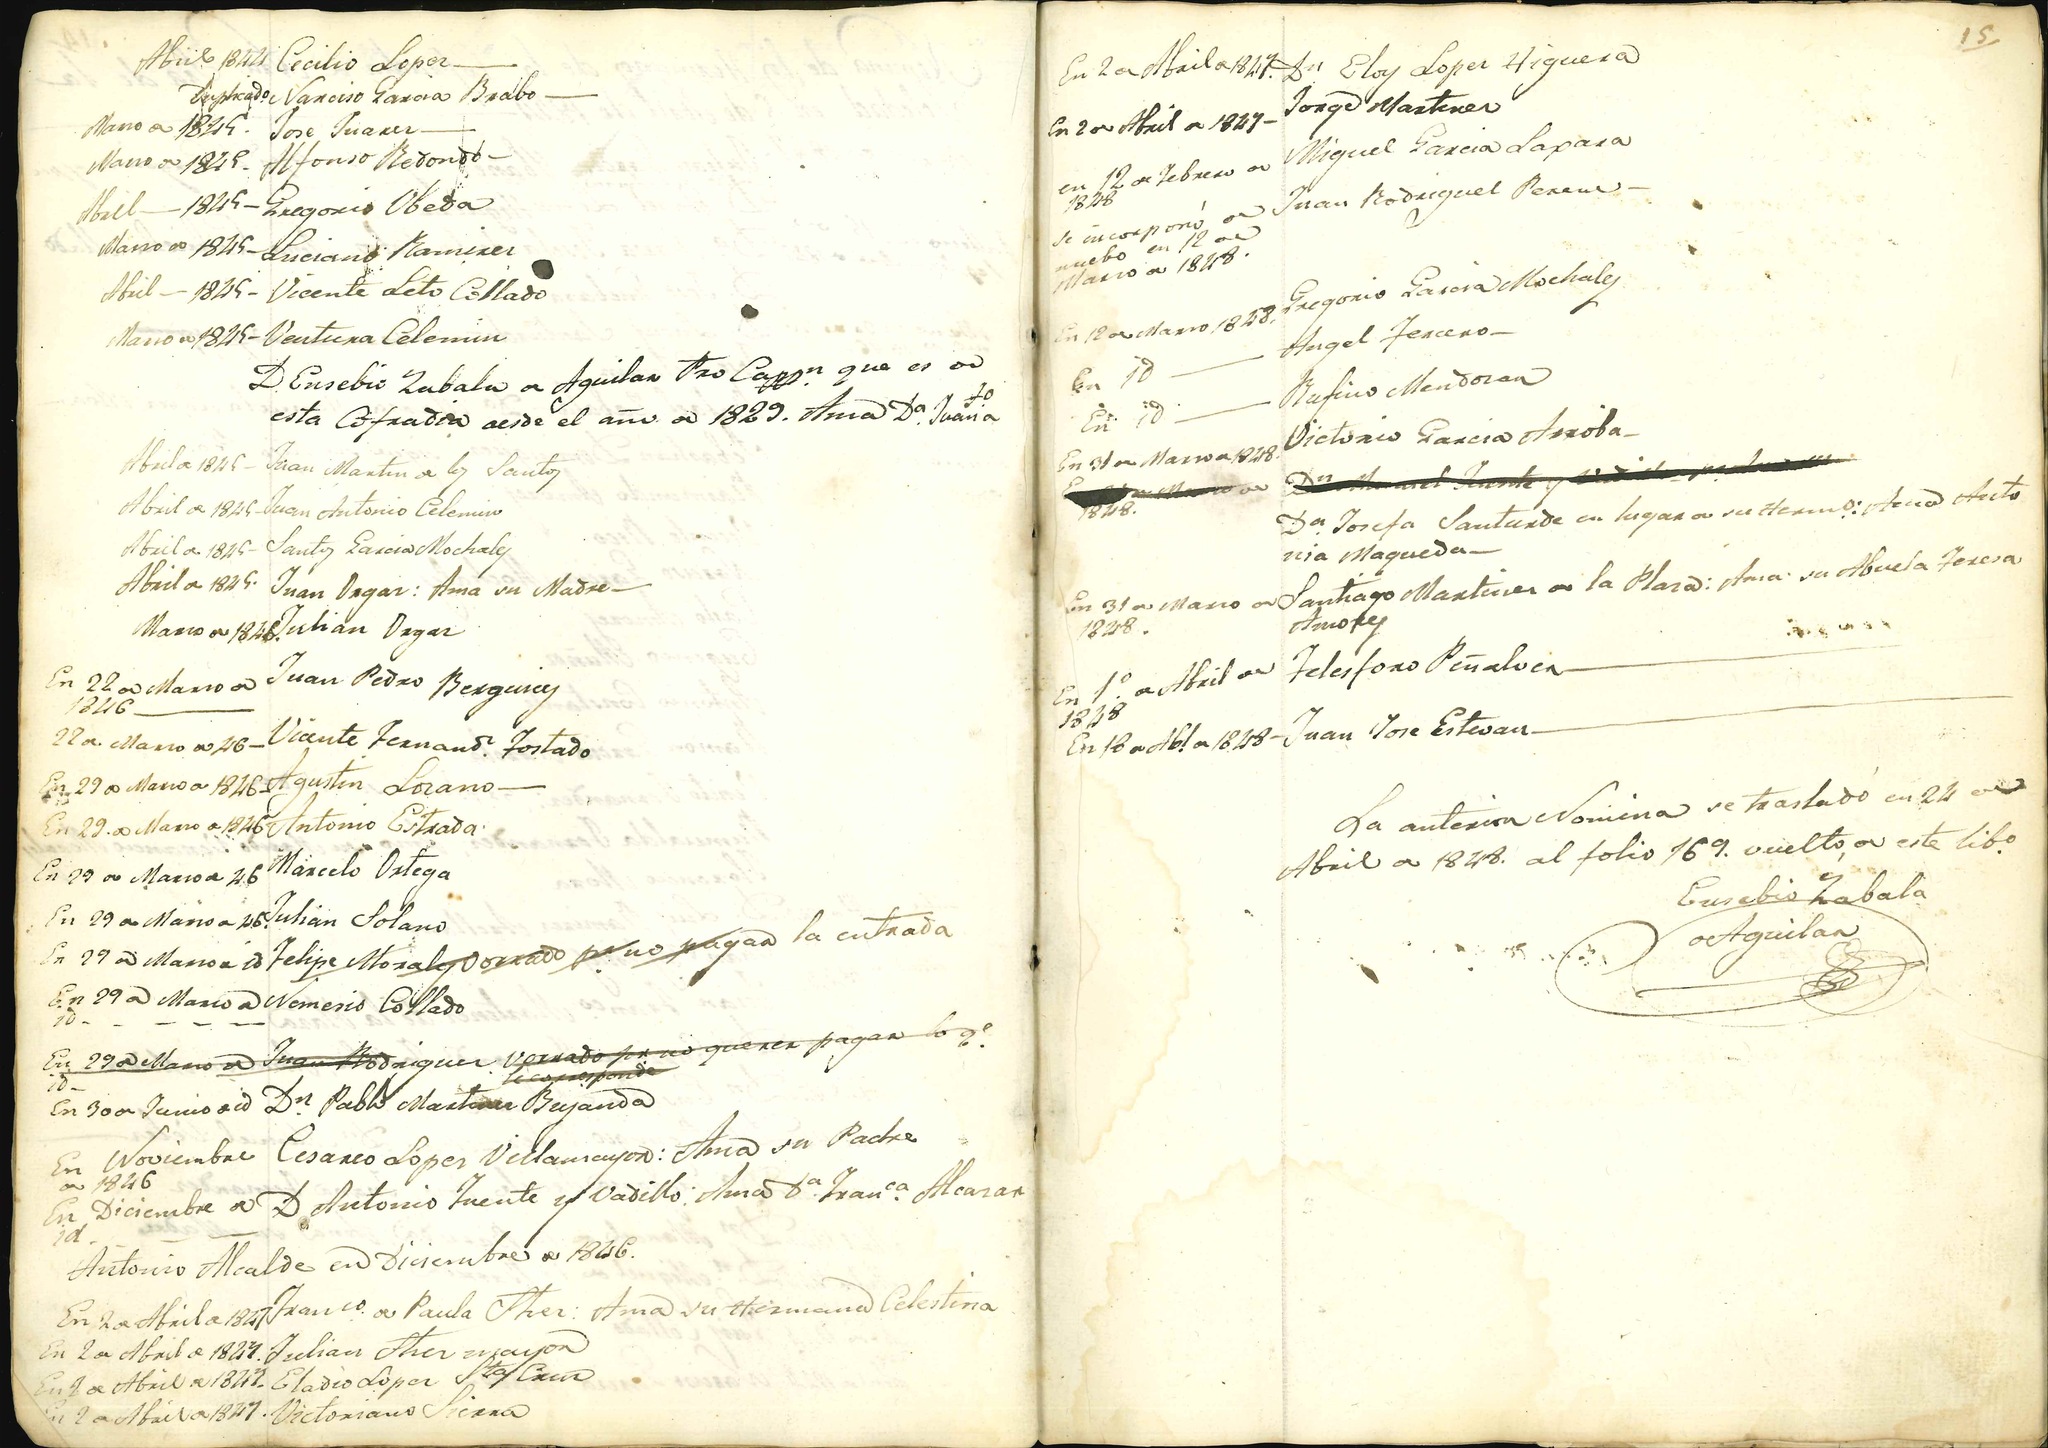 Abril 1844 Cecilio Lopez
Duplicado Narciso Garcia Brabo
Marzo de 1845. Jose Juarez
Marzo de 1845. Alfonso Redondo
Abril 1845 Gregorio Obeda
Marzo de 1845 Luciano Ramirez
Abril 1845 Vicente Leto Collado
Marzo de 1845 Ventura Celemin
D. Eusebio Zabala de Aguilar Pro Cappn. que es de
esta Cofradia desde el año de 1829. Ama Da. Juana
Abril de 1845 Juan Martin de los Santos
Abril de 1845 Juan Antonio Celemin
Abril de 1845 Santos Garcia Mochales
Abril de 1845. Juan Orgaz: Ama su Madre
Marzo de 1846. Julian Orgaz
En 22 de Marzo de Juan Pedro
1846
22 de Marzo de 46 Vicente Fernandz. Tostado
En 29 de Marzo de 1846 Agustin Lozano
En 29 de Marzo de 1846 Antonio Estrada
En 29 de Marzo de 46 Marcelo Ortega
En 29 de Marzo de 46. Julian Solano
En 29 de Marzo de id Felipe Morales Vorrado pr. no pagar la entrada
En 29 de Marzo de Nemesio Collado
id
En 29 de Marzo de Juan Rodriguez Vorrado pr no querer pagar lo qe.
id le corresponde
En 30 de Junio de id Dn. Pablo Martinez Bujanda
En Noviembre Cesareo Lopez Villamayor: Ama su Padre
de 1846
En Diciembre de D Antonio Fuente y Vadillo: Ama Da. Franca. Alcazar
id.
Antonio Alcalde en Diciembre de 1846.
En 2 de Abril de 1847 Franco. de Paula Sher: Ama su Hermana Celestina
En 2 de Abril de 1847. Julian Sher mayor
En 2 de Abril de 1847. Eladio Lopez Sta. Cruz
En 2 de Abril de 1847. Victoriano Sierra
15
En 2 de Abril de 1847. Dn Eloy Lopez Higuera
En 2 de Abril de 1847 Jorge Martinez
en 12 de Febrero de Miguel Garcia Lapara
1848
se incorporó de Juan Rodriguel
nuebo en 12 de
Marzo de 1848.
En 12 de Marzo 1848. Gregorio Garcia Mochales
En id Angel Tercero
En id Rufino Mendozar
En 31 de Marzo de 1848. Victorio Garcia Arroba
Marzo de Dn Manuel Fuente y
1848.
Da. Josefa Santurde en lugar de su Hermo: Ama Anto
nia Maqueda
En 31 de Marzo de Santiago Martinez de la Plaza: Ama su Abuela Teresa
1848. Amores
En 1o. de Abril de Telesforo Peñalver
1848
En 18 de Abl. de 1848 Juan Jose Estevan
La anterior Nomina se trasladó en 24 de
Abril de 1848. al folio 169. vuelto, de este libo.
Eusebio Zabala
de Aguilar